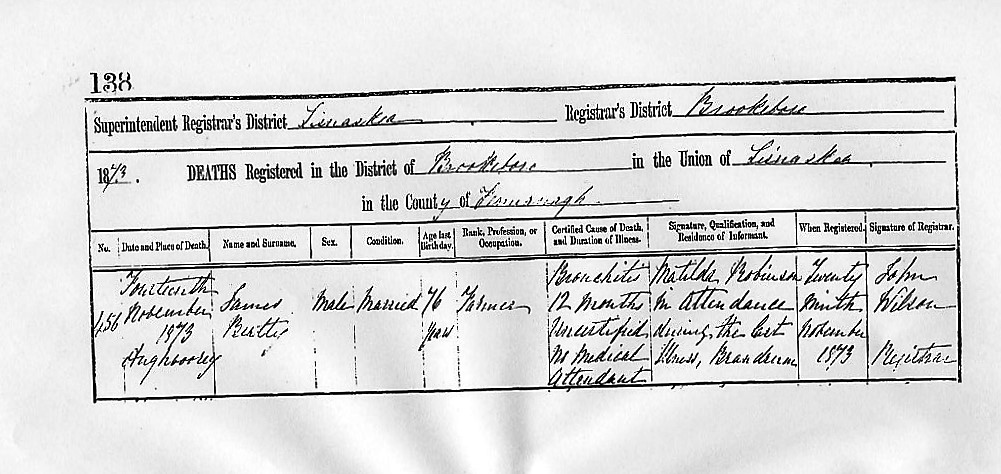 138
Superintendent Registrar's District Lisnaskea Registrar's District Brookeboro
1873. DEATHS Registered in the District of Brookeboro in the Union of Lisnaskea.
in the County of Fermanagh
No. Date and Place of Death. Name and Surname. Sex. Condition. Age last Birthday. Rank, Profession, or Occupation. Certified Cause of Death, and Duration of Illness. Signature, Qualification, and Residence of Informant. When Registered. Signature of Registrar.
456 Fourteenth November 1873 James Male Married 76 years Farmer Bronchitis 12 Months Uncertified No Medical Attendant Matilda Robinson in Attendance during the last illness, Twenty Ninth November 1873 John Wilson Registrar